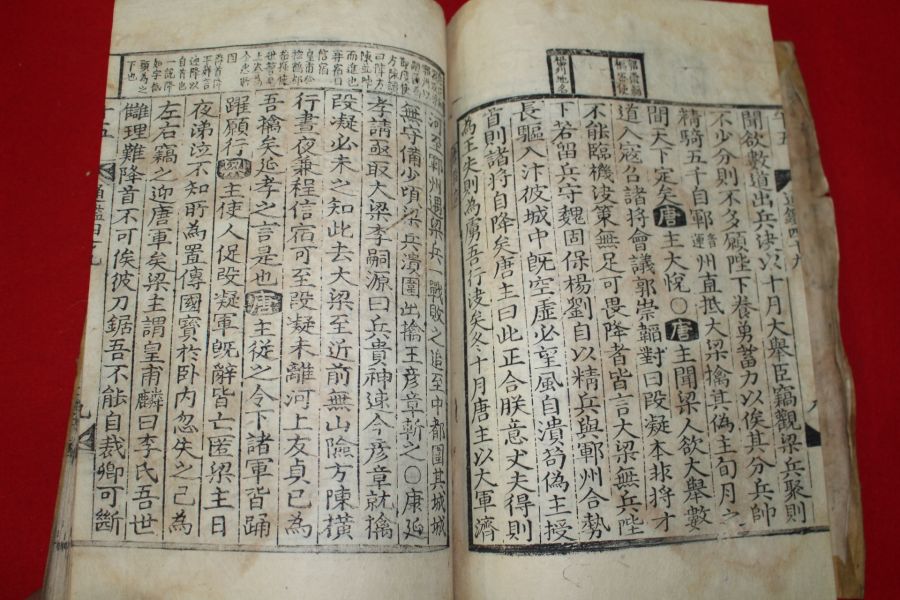 聞欲數道出兵決以十月大舉臣竊觀梁兵聚則
不少分則不多願陛下養勇蓄力以俟其分兵帥
精騎五千自鄆音運州直抵大梁擒其偽主旬月之
間天下定矣唐主大悅○唐主聞梁人欲大舉數
道入寇召諸將會議郭崇韜對曰段凝本非將才
不能臨機決策無足可畏降者皆言大梁無兵陛
下若留兵守魏固保楊劉自以精兵與鄆州合勢
長驅入汴彼城中旣空虛必望風自潰苟偽主授
首則諸將自降矣唐主曰此正合朕意丈夫得則
為王失則為虜吾行決矣冬十月唐主以大軍濟
河至鄆州遇梁兵一戰敗之追至中都圍其城城
無守備少頃梁兵潰圍出擒王彥章斬之○康延
孝請亟取大梁李嗣源曰兵貴神速今彥章就擒
段凝必未之知此去大梁至近前無山險方陳橫
行晝夜兼程信宿可至段凝未離河上友貞已為
吾擒矣延孝之言是也唐主從之令下諸軍皆踊
躍願行梁主使人促段凝軍旣辭皆亡匿梁主日
夜涕泣不知所為置傳國寶於卧内忽失之已為
左右竊之迎唐軍矣梁主謂皇甫麟曰李氏吾世
讎理難降首不可俟彼刀鋸吾不能自裁卿可斷
通鑑四十九